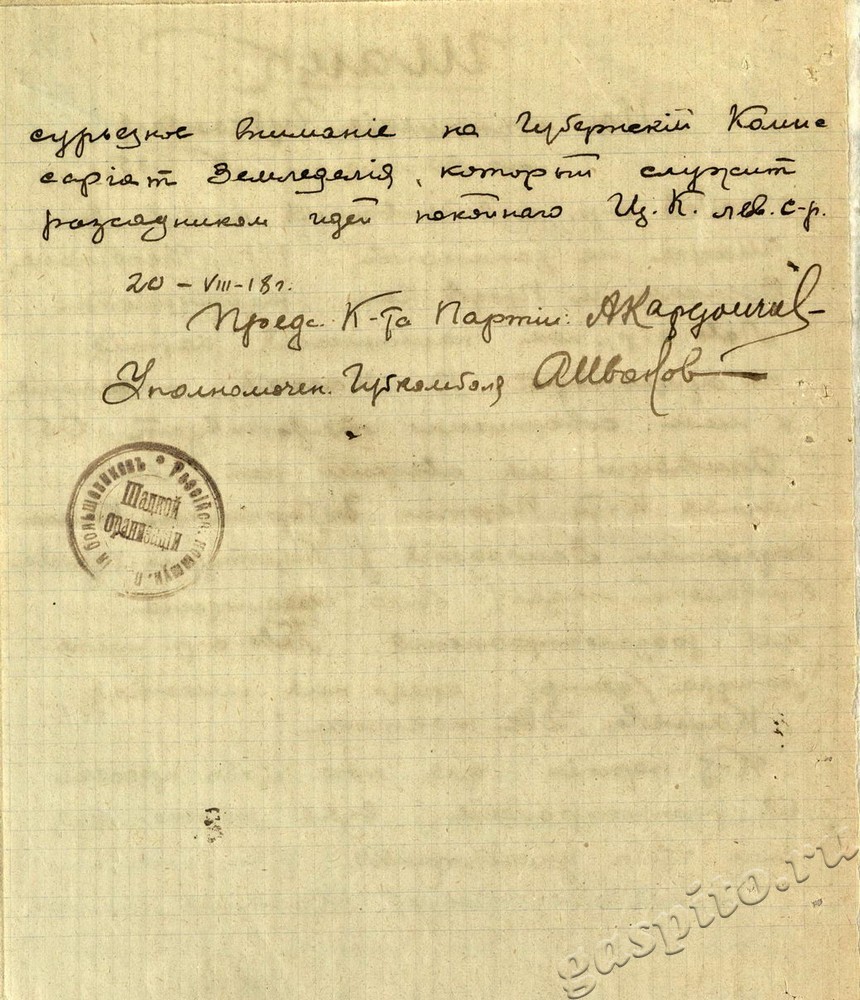 сурьезное внимание на Губернскій Комис
саріат Земледелія, который служит
разсадником идей покойнаго Ц.К. лев. с-р.
20 – VIII – 18 г.
Предс. К-та Партіи:
Уполномочен. Губкомбола АИванов
Російск. коммун. п. ія большевиковъ
Шацкой
оранизаціи
gaspito.ru